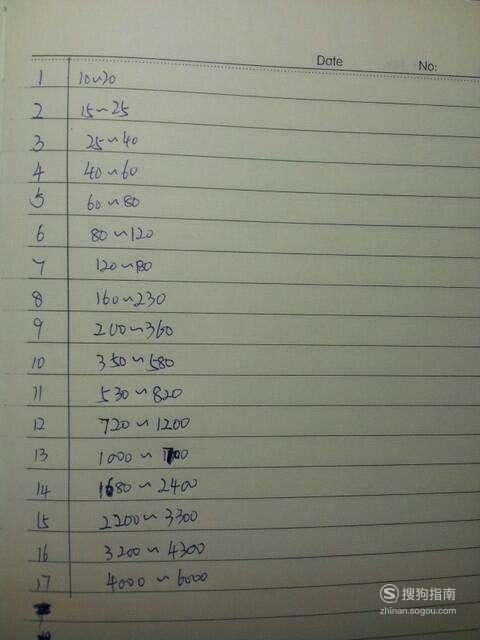 Date No:
1 10~20
2 15~25
3 25~40
4 40~60
5 60~80
6 80~120
7 120~180
8 160~230
9 200~360
10 350~580
11 530~820
12 720~1200
13 1000~1700
14 1680~2400
15 2200~3300
16 3200~4300
17 4000~6000
搜狗指南
zhinan.sogou.com